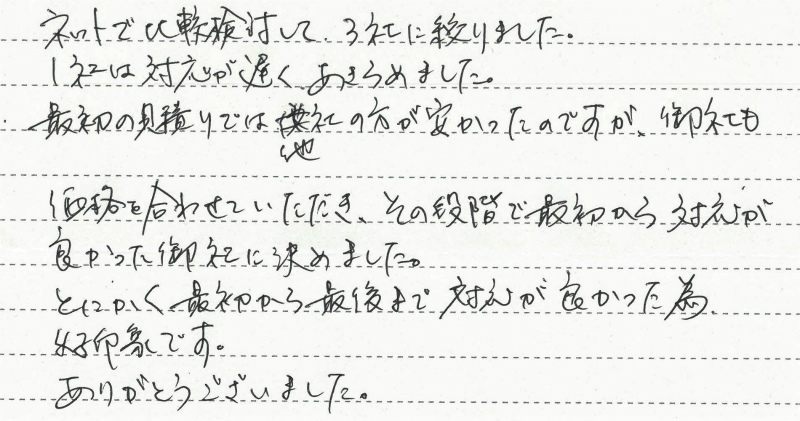 ネットで比較検討して、3社に絞りました。
1社は対応が遅く、あきらめました。
最初の見積りでは他社の方が安かったのですが、御社も
価格を合わせていただき、その段階で最初から対応が
良かった御社に決めました。
とにかく最初から最後まで対応が良かった為、
好印象です。
ありがとうございました。